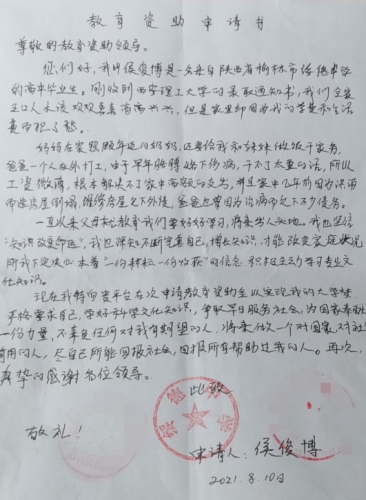 教育资助申请书
尊敬的教育资助领导。
您们好，我叫侯俊博是一名来自陕西省榆林市
的高中毕业生。刚收到西安理工大学的录取通知书，我们全家
五口人本该欢欢喜喜高高兴兴，但是家里却因为我的学费和生活
费而犯了愁。
妈妈在家照顾年迈的奶奶，还要给我和妹妹做饭干家务，
爸爸一个人在外打工，由于早年胳膊落下伤病，干不了太重的活，所以
工资微薄，根本解决不了家中高额的支出，并且家中几年前因为洪雨
而造房屋倒塌，维修房屋欠下外债，爸爸还要因为治病而欠下不少债务。
一直以来父母就教育我们要好好学习，将来出人头地。我也坚信
"知识改变命运"，我也深知不断完善自己，博长知识，才能改变家庭状况
所我下定决心本着"一份耕耘一份收获"的信念，积极主动学习专业文
化知识。
现在我特向贵平台在次申请教育资助金以实现我的大学梦
严格要求自己，学好科学文化知识，争取早日服务社会，为国家奉献
一份力量，不辜负任何对我有期望的人，将来做一个对国家，对社会
有用的人，尽自己所能回报社会，回报所有帮助过我的人。再次，
真挚的感谢各位领导。
此致
敬礼！
申请人：侯俊博
2021.8.10日